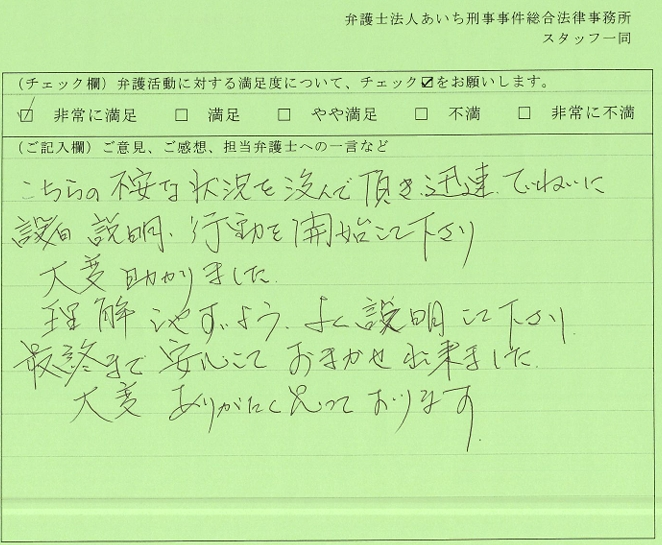 弁護士法人あいち刑事事件総合法律事務所
スタッフ一同
(チェック欄)弁護活動に対する満足度について、チェック☑をお願いします。
☑ 非常に満足 □ 満足 □ やや満足 □ 不満 □ 非常に不満
(ご記入欄)ご意見、ご感想、担当弁護士への一言など
こちらの不安な状況を汲んで頂き、迅速、ていねいに
説明、行動を開始して下さり
大変助かりました。
理解しやすいよう、よく説明して下さり、
最終まで安心しておまかせ出来ました。
大変ありがたく思っております。